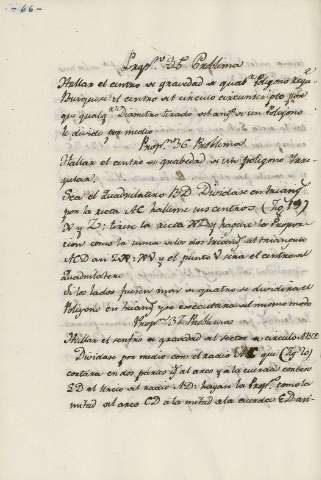 -66-
Prop.n 35 Problema
Hallar el centro de gravedad de qualq.r Poligono regu.r
Busquese el centro del circulo circunscripto por
que qualq.r Diametro tirado
lo divide por medio
Prop.n 36 Problema
Hallar el centro de gravedad de un poligono Irre-
gular.
Sea el Quadrilatero BD Dividase en triang.s
por la recta AC hallense sus centros (Fig 19)
X y Z: tirese la recta y hagase la Propor-
cion como la suma de los triang.s al triangulo
ACD asi ZX: XV y el punto V sera el centro del
Quadrilatero.
Si los lados fuesen mas de quatro se dividira el
Poligono en triang.s y se executara del mismo modo
Prop.n 37 Problema
Hallar el centro de gravedad del sector de circulo ABD
Dividase por medio con el radio que (Fig 20)
cortara en dos partes el arco y a la cuerda
SD el tercio del radio AD: hagan la Prop.n como la
mitad del arco CD a la mitad de la cuerda ED asi-